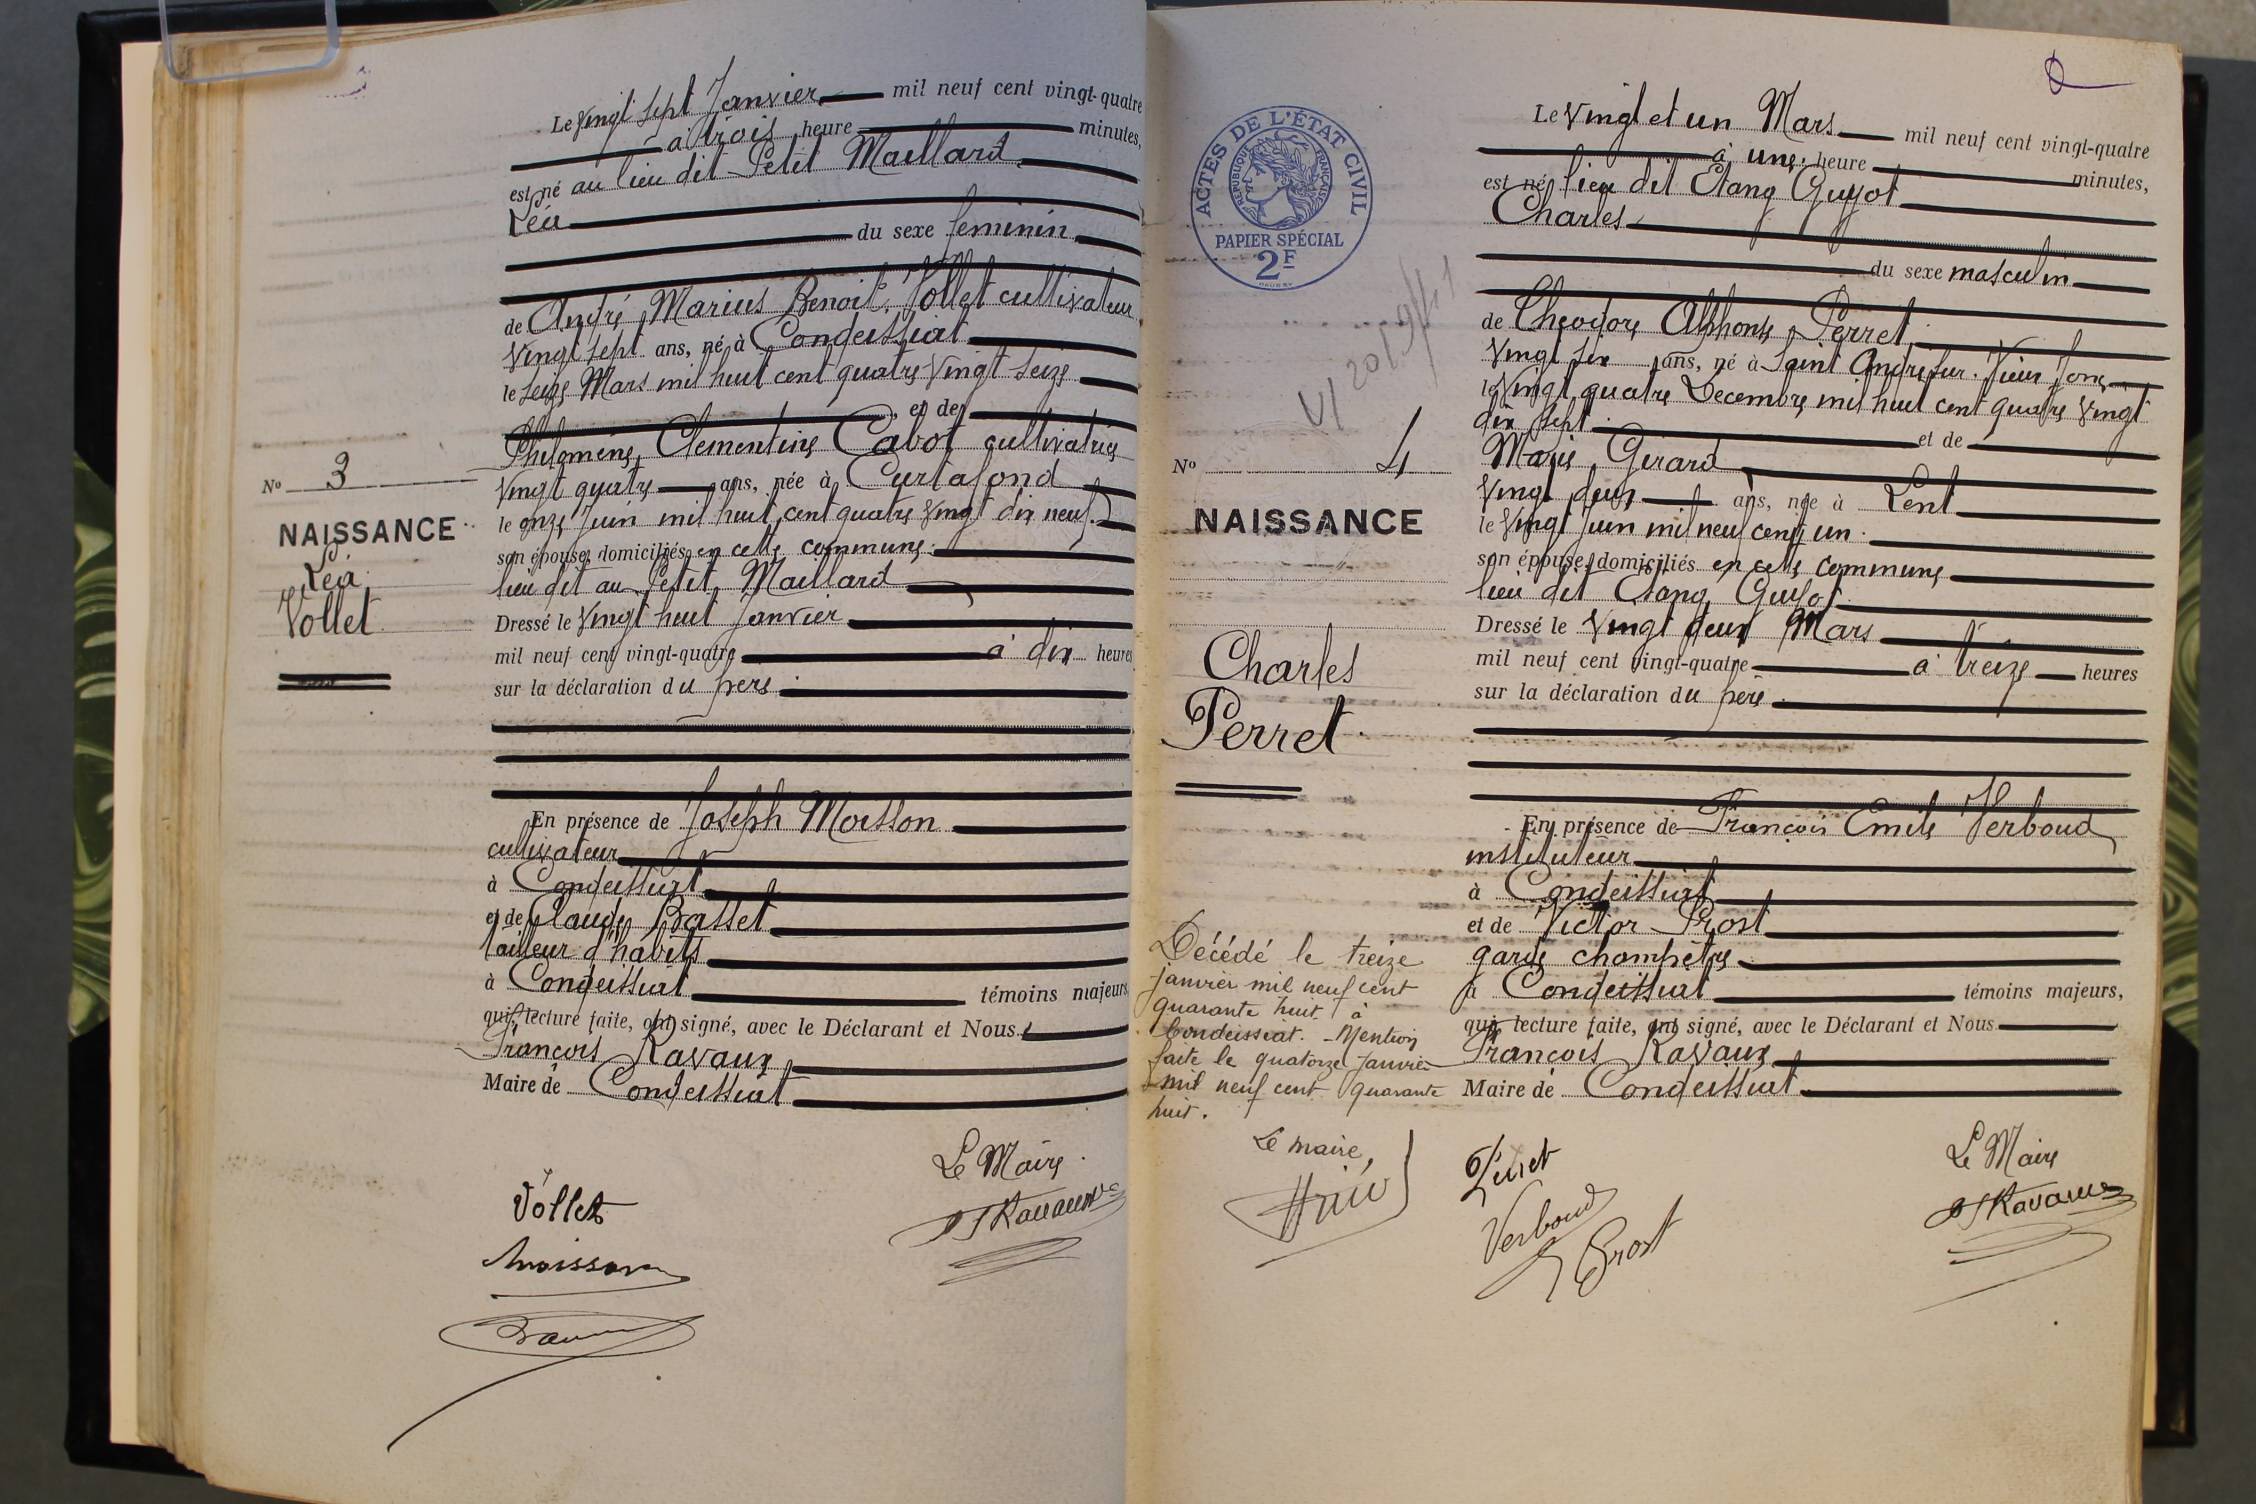 Le vingt sept Janvier mil neuf cent vingt-quatre
à trois heure minutes,
est né au lieu dit Petit Maillard
Léa
du sexe feminin
de André Marius Benoit Vollet cultivateur
vingt sept ans, né à Condeissiat
le seize Mars mil huit cent quatre vingt seize
et de
Philomène Clementine Cabot cultivatrice
vingt quatre ans, née à Curtafond
le onze Juin mil huit cent quatre vingt dix neuf
son épouse, domiciliés en cette commune
lieu dit au Petit Maillard
Dressé le vingt huit Janvier
mil neuf cent vingt-quatre à dix heures
sur la déclaration du père
En présence de Joseph Moisson
cultivateur
à Condeissiat
et de Claude Brasset
tailleur d'habits
à Condeissiat témoins majeurs
qui, lecture faite, ont signé, avec le Déclarant et Nous
François Ravaux
Maire de Condeissiat
Le Maire
Vollet
Moisson
No 3
NAISSANCE
Léa
Vollet
ACTES DE L'ÉTAT CIVIL
RÉPUBLIQUE FRANÇAISE
PAPIER SPÉCIAL
2F
No 4
NAISSANCE
Charles
Perret
Décédé le treize
janvier mil neuf cent
quarante huit à
Condeissiat. - Mention
faite le quatorze Janvier
mil neuf cent quarante
huit.
Le maire,
Le vingt et un Mars mil neuf cent vingt-quatre
à une heure minutes,
est né lieu dit Etang Guyot
Charles
du sexe masculin
de Théodore Alphonse Perret
vingt six ans, né à Saint André sur Vieux Jonc
le vingt quatre Décembre mil huit cent quatre vingt
dix sept et de
Marie Girard
vingt deux ans, née à Lent
le vingt Juin mil neuf cent un
son épouse, domiciliés en cette commune
lieu dit Etang Guyot
Dressé le vingt deux Mars
mil neuf cent vingt-quatre à treize heures
sur la déclaration du père
En présence de François Emile Verboud
instituteur
à Condeissiat
et de Victor Prost
garde champêtre
à Condeissiat témoins majeurs,
qui, lecture faite, ont signé, avec le Déclarant et Nous
François Ravaux
Maire de Condeissiat
Perret
Verboud
Prost
Le Maire